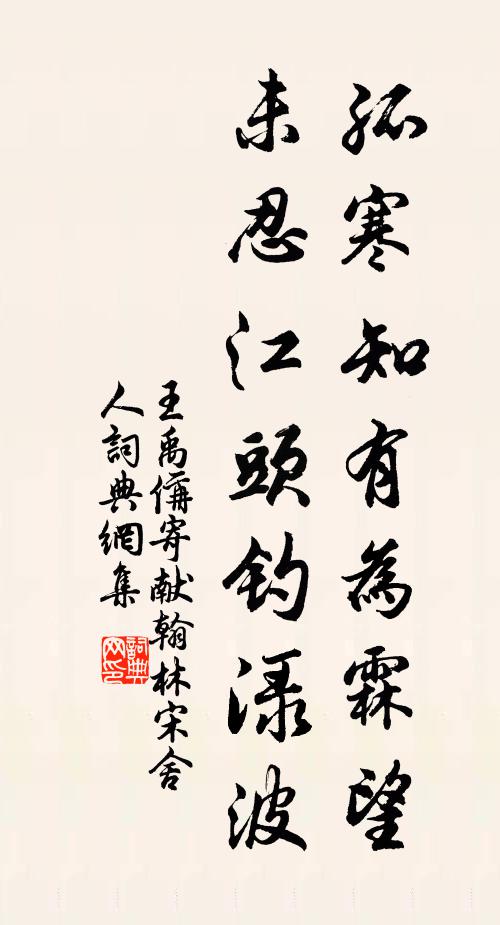 孤寒知有為霖望
未忍江頭釣渌波
王禹偁寄献翰林宋舍
人詞典網集
詞典
网印